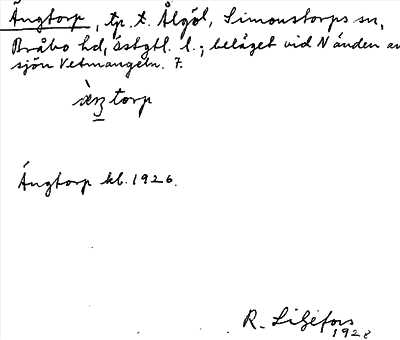 Ängtorp, tp. t. Ålgöl, Simonstorps sn,
Bråbo hd, Östgtl. l.; beläget vid N änden av
sjön Vetmangeln. 7.
torp
Ängtorp kb. 1926.
R. Liljefors
1928